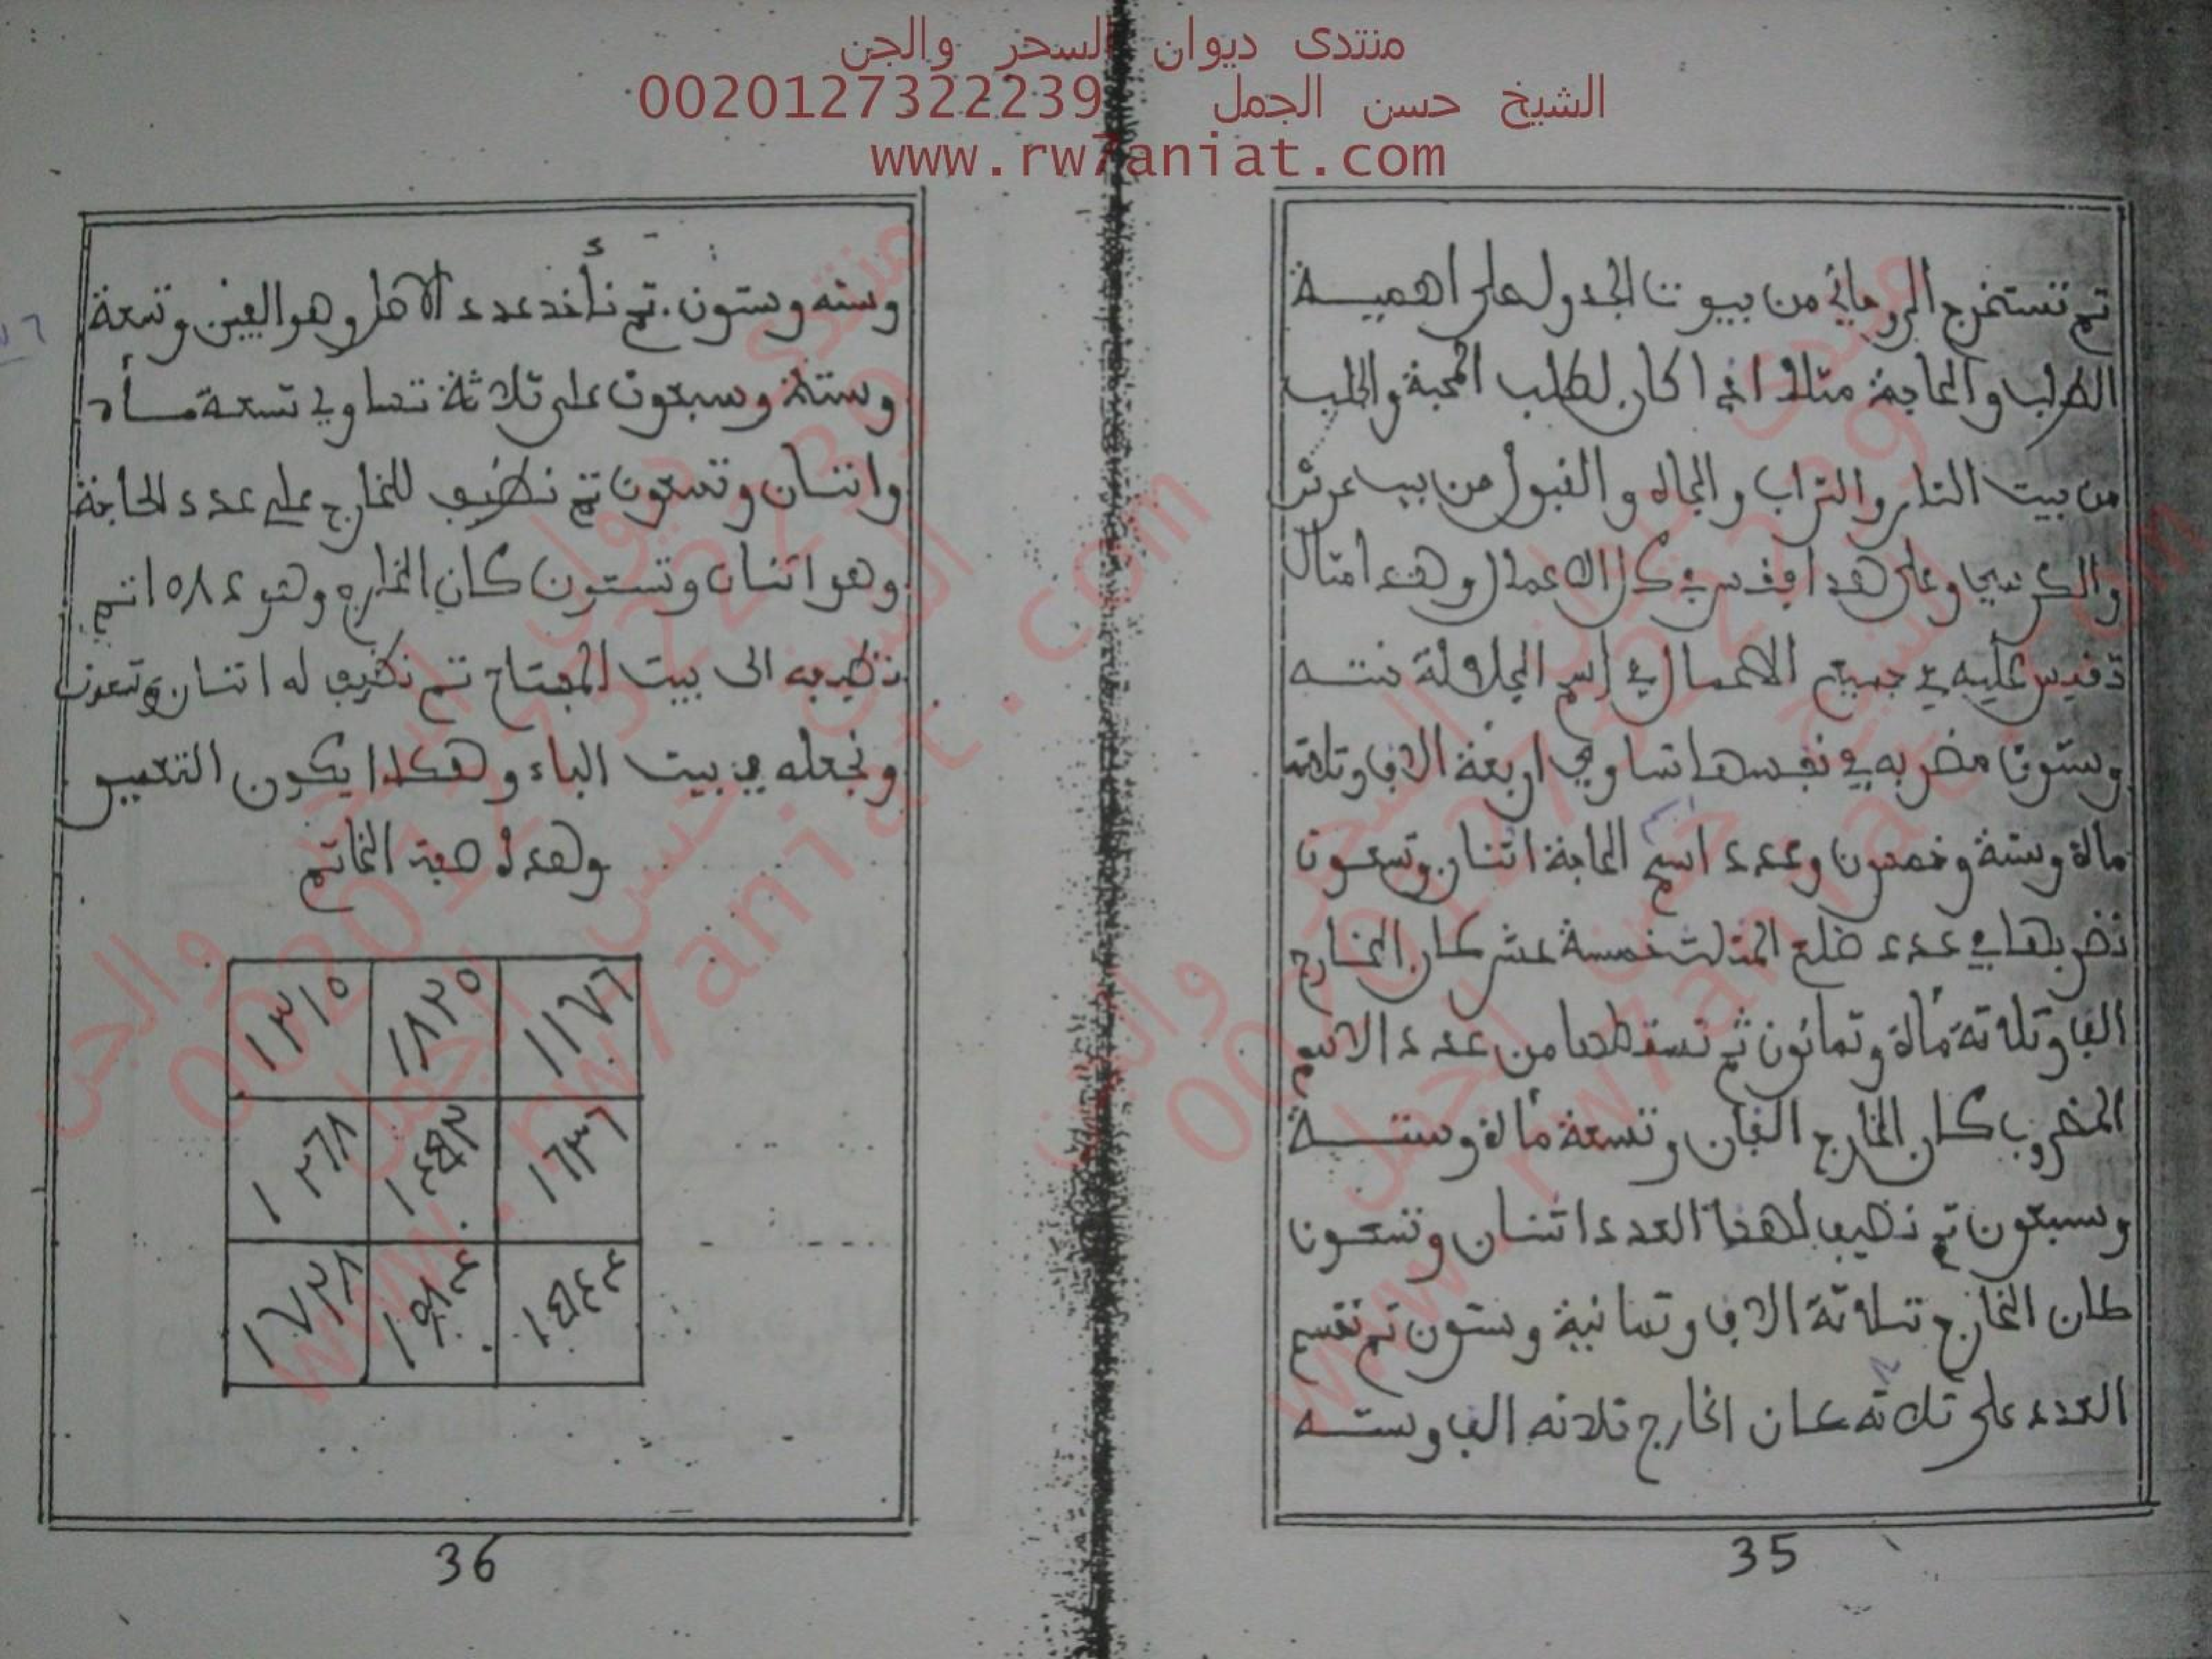 منتدى ديوان السحر والجن
الشيخ حسن الجمل 0020127322239
www.rw7aniat.com
تم تستخرج الروحاني من بيوت الجدول على اهمية
الطلب والحاجة مثلا اذا كان لطلب المحبة والجلب
من بيت النار والتراب والجاه والقبول من بيت عرش
والكرسي وعلى هدا فقس في كل الاعمال وهدا متال
تقيس عليه في جميع الاعمال في اسم الجلالة ستة
وستون مضربه في نفسها تساوي اربعة الاف وتلاتة
ماة وستة وخمسون وعدد اسم الحاجة اتنان وتسعون
نضربها في عدد ضلع المتلت خمسة عشر كان الخارج
الف وتلاتة مأة وتمانون تم تسقطها من عدد الاسم
المضروب كان الخارج الفان وتسعة مأة وستة
وسبعون تم نضيف لهذا العدد اتنان وتسعون
كان الخارج تلاتة الاف وتمانية وستون تم تقسم
العدد على تلاتة كان الخارج تلاتة الف وسته
35
وسته وستون. تم نأخد عدد الاصل وهو الفين وتسعة
وستة وسبعون على تلاتة تساوي تسعة مأة
واتنان وتسعون تم نضيف للخارج على عدد الحاجة
وهو اتنان وتستون كان الخارج وهو ١٠٨٤ تم
نضربه الى بيت المفتاح تم نضيف له اتنان وتسعون
ونجعله في بيت الباء وهكدا يكون التعمير
وهده صفة الخاتم
١١٧٦ ١٨٢٠ ١٣١٥
١٦٣٦ ١٢٦٨
١٧٢٨
36